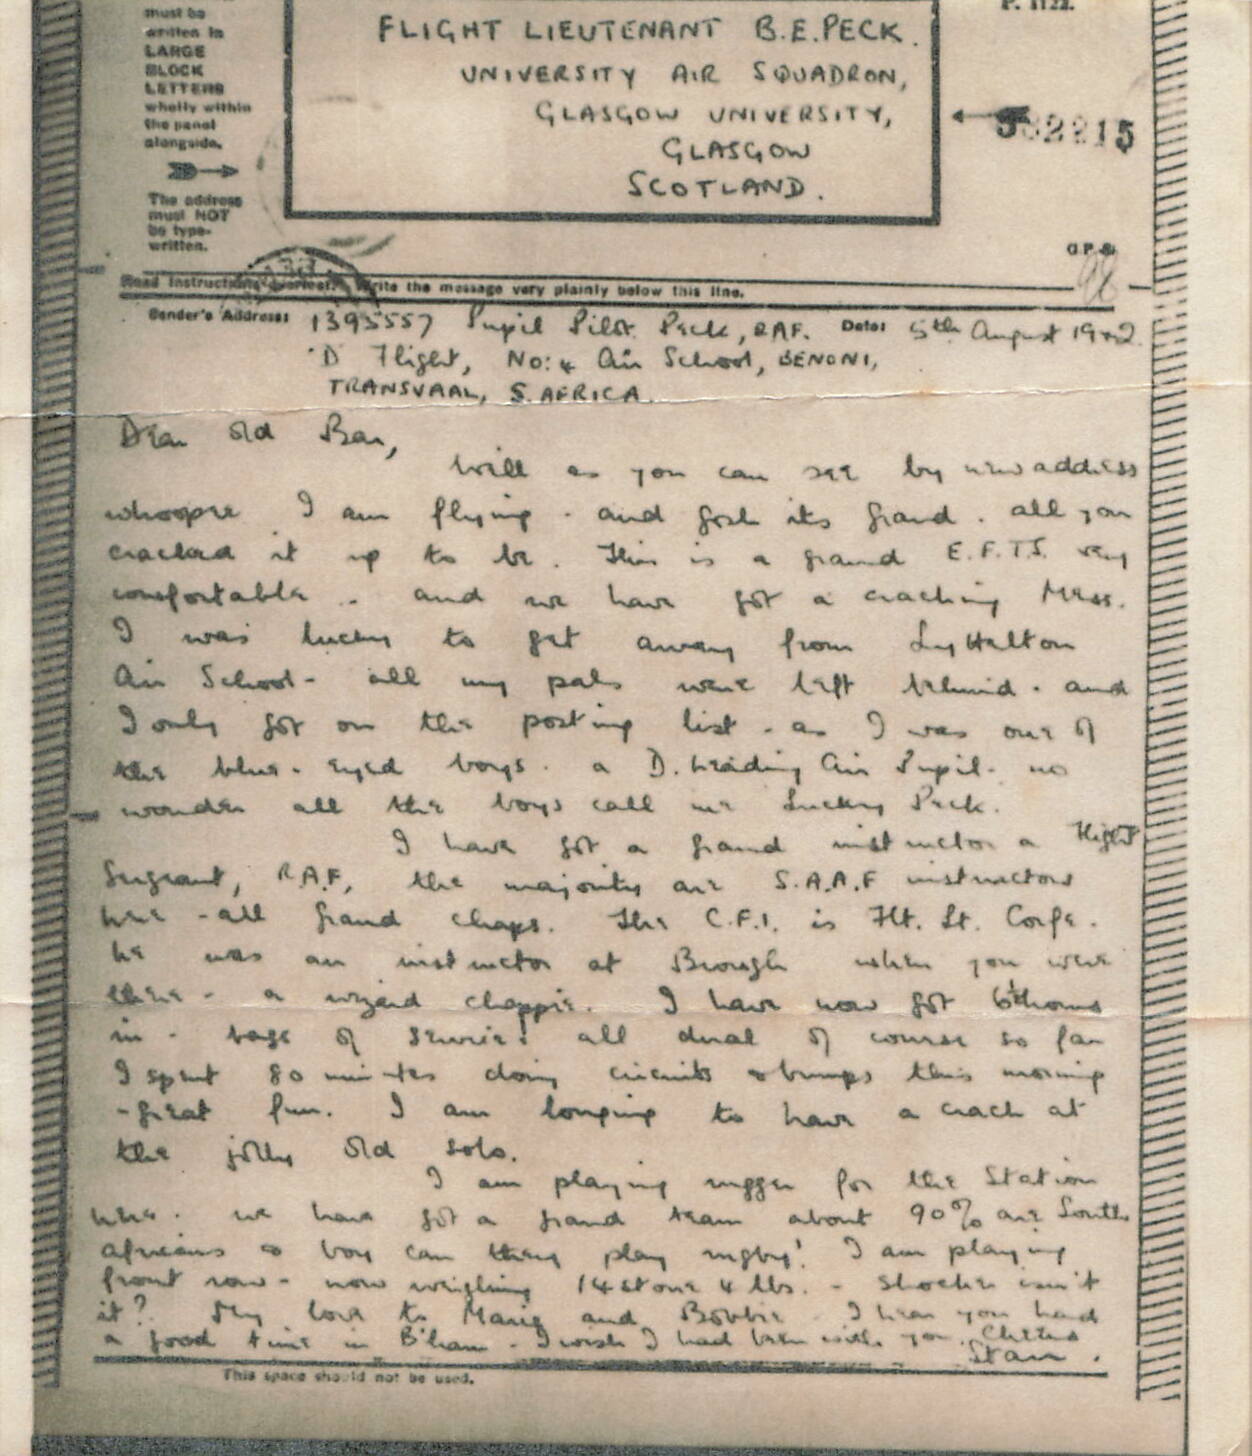 must be
written in
LARGE
BLOCK
LETTERS
wholly within
the panel
alongside.
The address
must NOT
be type-
written.
FLIGHT LIEUTENANT B.E.PECK.
UNIVERSITY AIR SQUADRON,
GLASGOW UNIVERSITY,
GLASGOW
SCOTLAND.
2215
Write the message very plainly below this line.
Sender's Address: 1395557 Pupil Pilot Peck, RAF. Date: 5th August 1942.
'D' Flight, No: 4 Air School, BENONI,
TRANSVAAL, S. AFRICA.
Dear old Bar,
Well as you can see by new address
whoopee I am flying - and gosh its grand. all you
cracked it up to be. This is a grand E.F.T.S. very
comfortable - and we have got a cracking Mess.
I was lucky to get away from Lyttelton
Air School - all my pals were left behind - and
I only got on the posting list - as I was one of
the blue-eyed boys. a D. Leading Air Pupil - no
wonder all the boys call me Lucky Peck.
I have got a grand instructor a Flight
Sergeant, RAF, the majority are S.A.A.F instructors
here - all grand chaps. The C.F.I. is Flt. Lt. Corfe.
he was an instructor at Brough when you were
there - a wizard chappie. I have now got hours
in - bags of service! all dual of course so far
I spent 80 minutes doing circuits & bumps this morning
- great fun. I am longing to have a crack at
the jolly old solo.
I am playing rugger for the Station
here. we have got a grand team about 90% are South
africans & boy can they play rugby! I am playing
front row - now weighing 14 stone 4 lbs. - shocker isn't
it? My love to and Bobbie. I hear you had
a good time in B'ham - I wish I had been with you. Cheers
Stan.
This space should not be used.